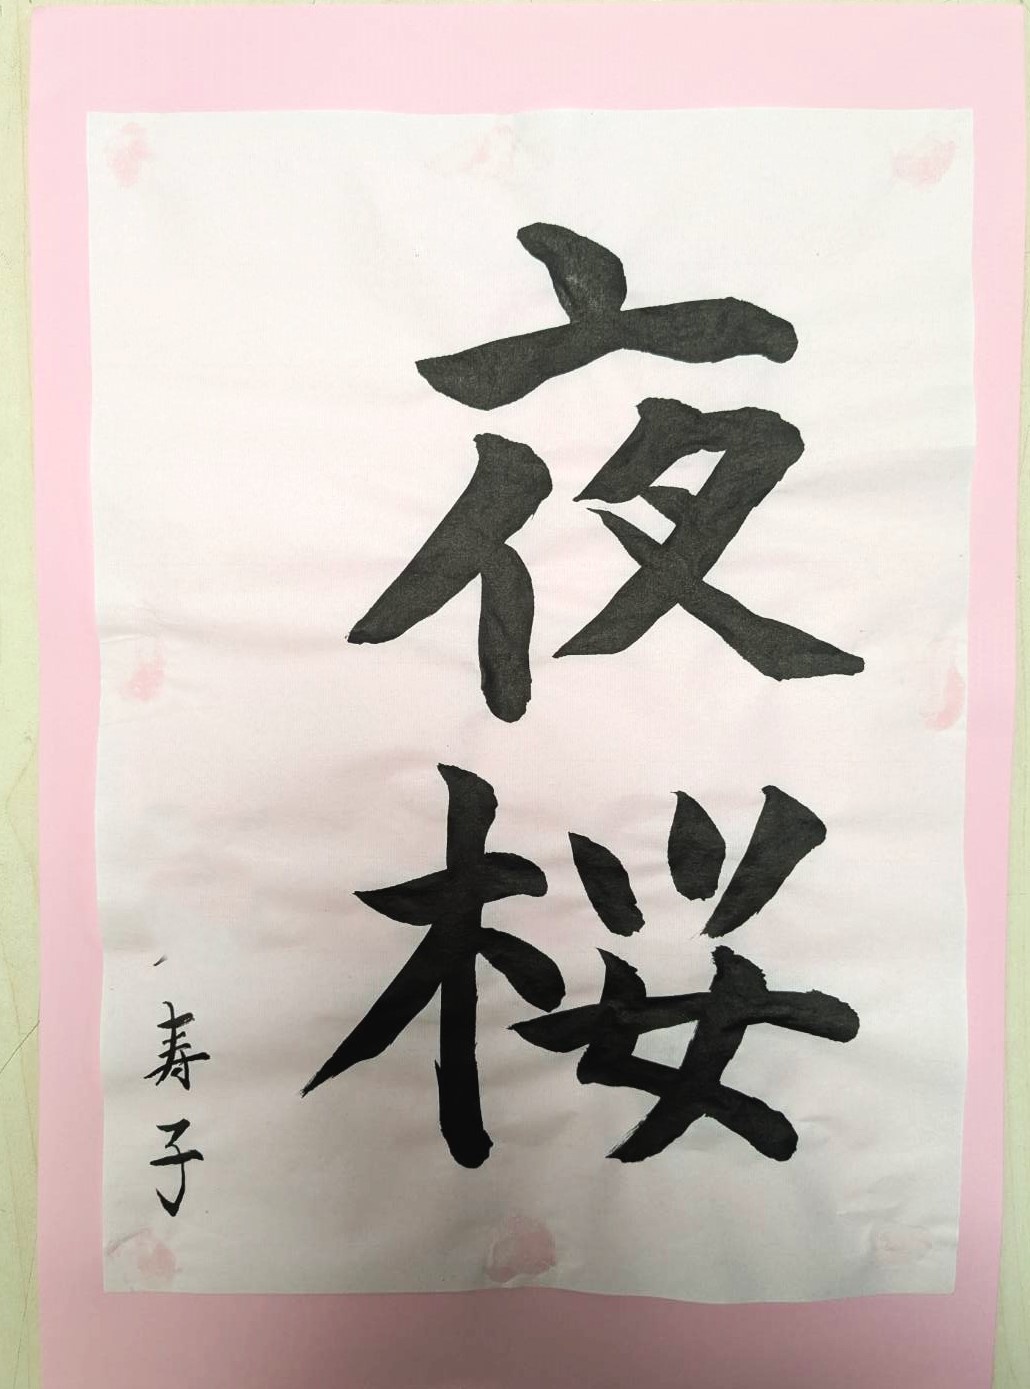 夜桜
寿子